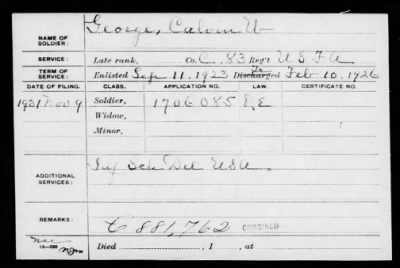 NAME OF SOLDIER: George, Calvin W
SERVICE: Late rank, Co. C. 83 Reg't U S F A
TERM OF SERVICE: Enlisted Sep 11. 1923 Discharged Feb 10. 1926
DATE OF FILING. CLASS. APPLICATION NO. LAW. CERTIFICATE NO.
1931 Nov 9 Soldier, 1706085 P.E
Widow,
Minor,
ADDITIONAL SERVICES: Inf Sch Det USA.
REMARKS: C 881,762 COMBINED
Died , 1 , at